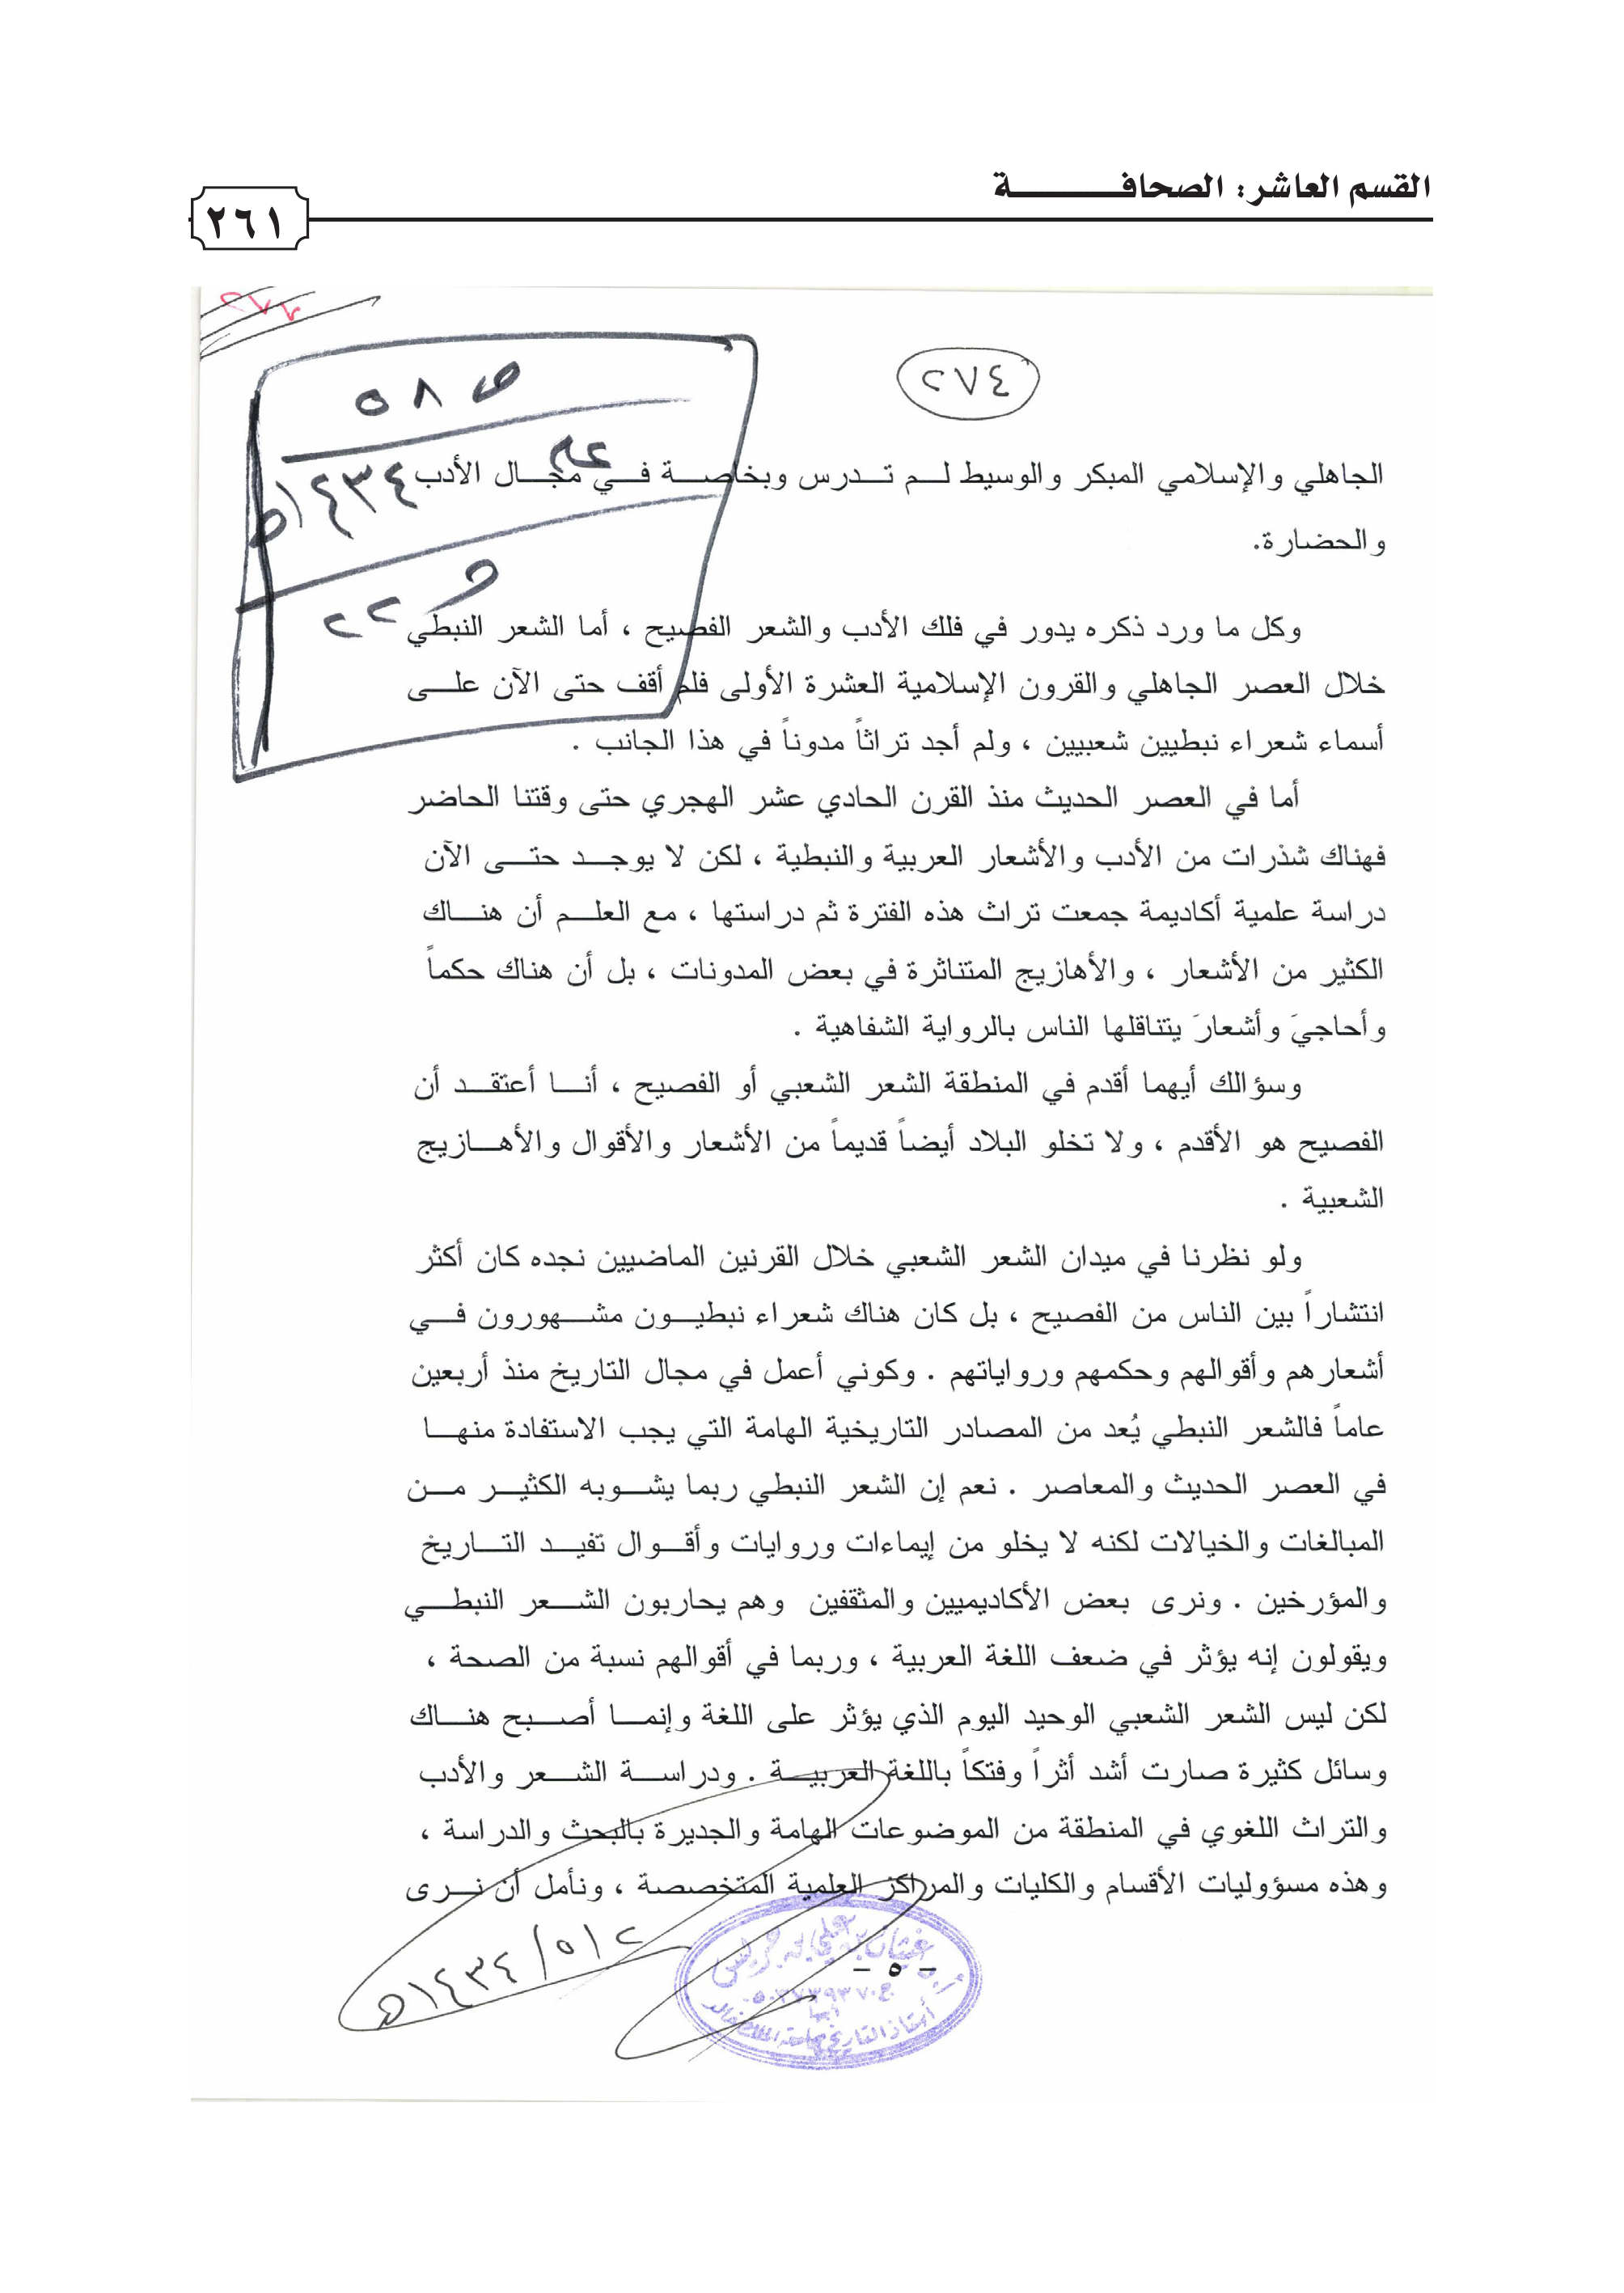 القسم العاشر: الصحافـــــــــــة
٢٦١
٢٧٤
ص ٨ ٥
عام
١٤٣٤هـ
و ٢٢
الجاهلي والإسلامي المبكر والوسيط لـم تـدرس وبخاصـة فـي مجـال الأدب
والحضارة.
وكل ما ورد ذكره يدور في فلك الأدب والشعر الفصيح ، أما الشعر النبطي
خلال العصر الجاهلي والقرون الإسلامية العشرة الأولى فلم أقف حتى الآن علـى
أسماء شعراء نبطيين شعبيين ، ولم أجد تراثاً مدوناً في هذا الجانب .
أما في العصر الحديث منذ القرن الحادي عشر الهجري حتى وقتنا الحاضر
فهناك شذرات من الأدب والأشعار العربية والنبطية ، لكن لا يوجـد حتـى الآن
دراسة علمية أكاديمة جمعت تراث هذه الفترة ثم دراستها ، مع العلـم أن هنـاك
الكثير من الأشعار ، والأهازيج المتناثرة في بعض المدونات ، بل أن هناك حكماً
وأحاجيَ وأشعارَ يتناقلها الناس بالرواية الشفاهية .
وسؤالك أيهما أقدم في المنطقة الشعر الشعبي أو الفصيح ، أنـا أعتقـد أن
الفصيح هو الأقدم ، ولا تخلو البلاد أيضاً قديماً من الأشعار والأقوال والأهـازيج
الشعبية .
ولو نظرنا في ميدان الشعر الشعبي خلال القرنين الماضيين نجده كان أكثر
انتشاراً بين الناس من الفصيح ، بل كان هناك شعراء نبطيـون مشـهورون فـي
أشعارهم وأقوالهم وحكمهم ورواياتهم . وكوني أعمل في مجال التاريخ منذ أربعين
عاماً فالشعر النبطي يُعد من المصادر التاريخية الهامة التي يجب الاستفادة منهـا
في العصر الحديث والمعاصر . نعم إن الشعر النبطي ربما يشـوبه الكثيـر مـن
المبالغات والخيالات لكنه لا يخلو من إيماءات وروايات وأقـوال تفيـد التـاريخ
والمؤرخين . ونرى بعض الأكاديميين والمثقفين وهم يحاربون الشـعر النبطـي
ويقولون إنه يؤثر في ضعف اللغة العربية ، وربما في أقوالهم نسبة من الصحة ،
لكن ليس الشعر الشعبي الوحيد اليوم الذي يؤثر على اللغة وإنمـا أصـبح هنـاك
وسائل كثيرة صارت أشد أثراً وفتكاً باللغة العربيـة . ودراسـة الشـعر والأدب
والتراث اللغوي في المنطقة من الموضوعات الهامة والجديرة بالبحث والدراسة ،
وهذه مسؤوليات الأقسام والكليات والمراكز العلمية المتخصصة ، ونأمل أن نـرى
٢/٥/١٤٣٤هـ
أ.د. غيثان بن علي بن جريس
- ٥ -
أبها
أستاذ التاريخ جامعة الملك خالد